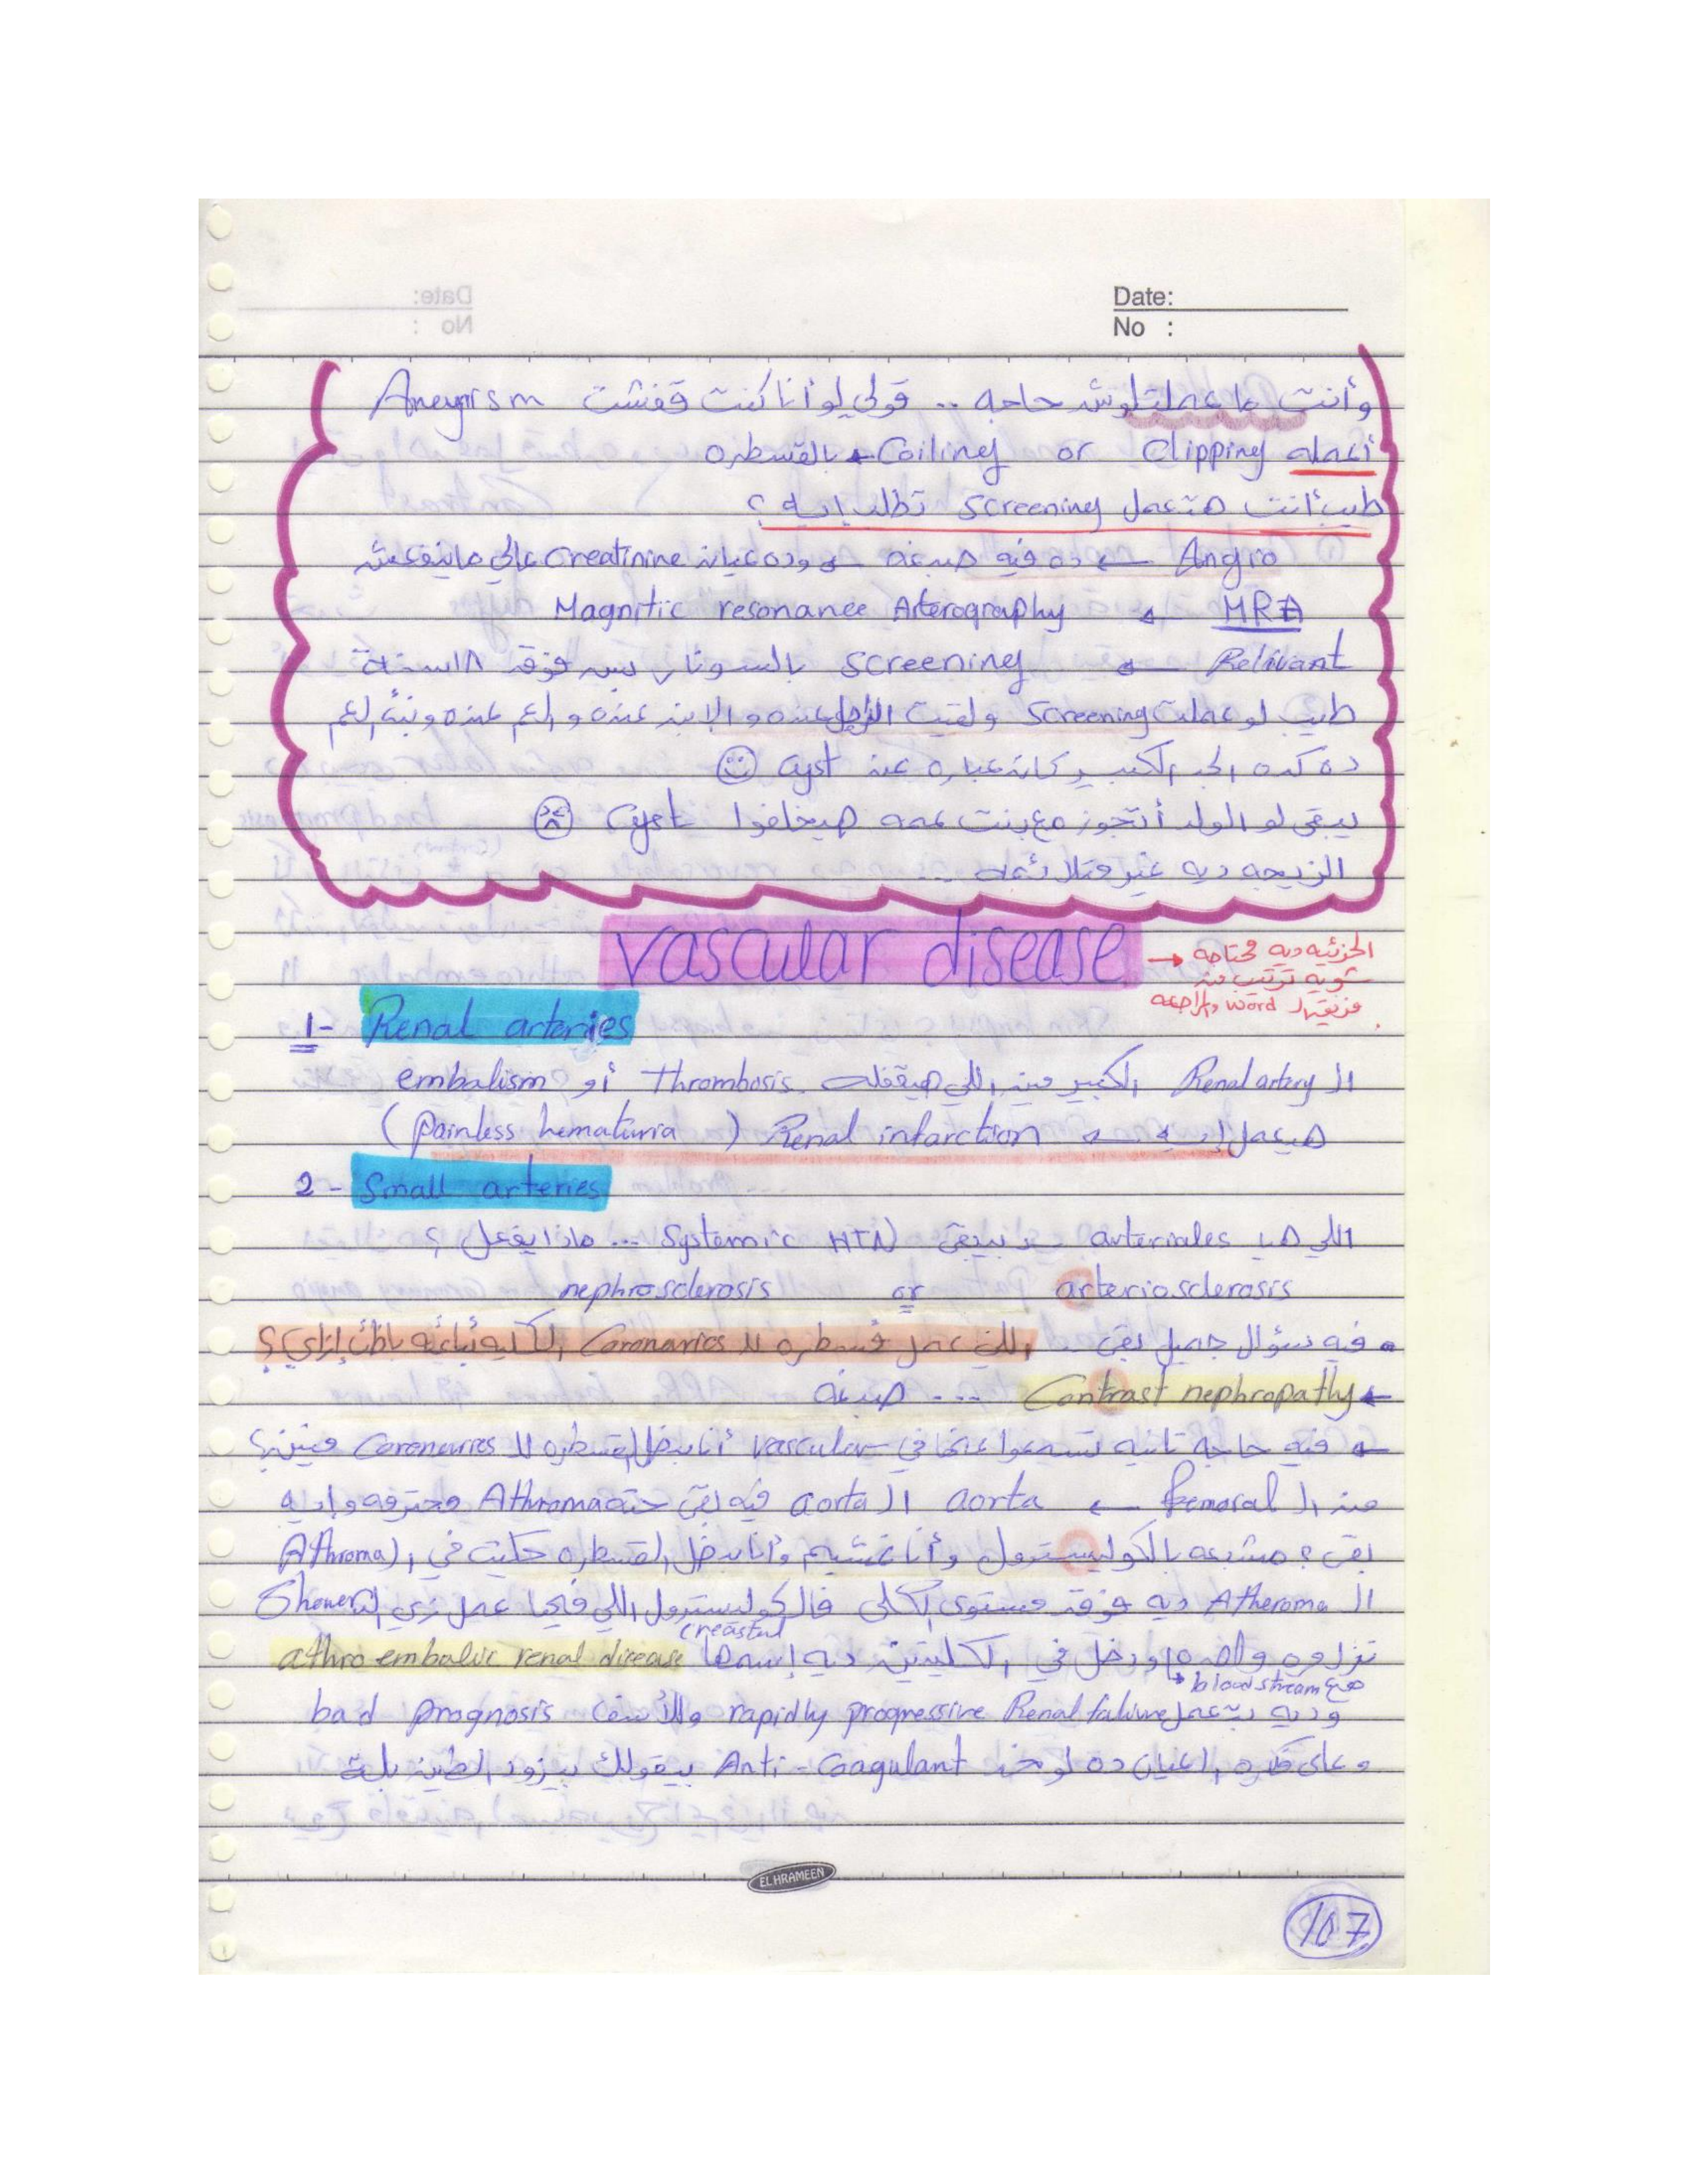 Date:
No :
وأنت ما عملتلوش حاجه .. قولي لو أنا كنت قفشت Aneyrism
أعمله Clipping or Coiling ← بالقسطره
طيب أنت هتعمل screening تطلب إيه ؟
Angio ← ده فيه صبغه ← وده عيان creatinine عالي ماينفعش
MRA ← Magnitic resonance Arterography
Relivant ← screening بالسونار بس فوق ١٨ سنة
طيب لو عملت screening ولقيت الراجل عنده والابن عنده والعم عنده وبنت العم
ده كده الجد الكبير كان عباره عن cyst
يبقى لو الولد أتجوز مع بنت عمه هيخلفوا Cyst
الزيجه ديه غير متلائمه ...
vascular disease
→ الجزئيه ديه محتاجه
شويه ترتيب من
فريق الـ word والمراجعه
1- Renal arteries
الـ Renal artery الكبير مين اللي هيقفله thrombosis أو embalism
هيعمل إيه ← Renal infarction ( painless hematuria )
2 - Small arteries
اللي هيا arteriales يبقى Systemic HTN ... ماذا يفعل ؟
arteriosclerosis or nephrosclerosis
فيه سؤال جميل بقى .. اللي عمل قسطره للـ Coronaries الكليه باظت إزاي ؟
← Contrast nephropathy .... صبغه
← فيه حاجه تانيه تسمعوا عنها في vascular أنا بدخل القسطره للـ Coronaries منين ؟
من الـ femoral ← aorta الـ aorta فيه بقى حته Athroma محترمه وايه
بقى ؟ مشبعه بالكوليسترول وأنا غشيم وأنا بدخل القسطره حكيت في الـ (Athroma
الـ Atheroma ديه فوق مستوى الكلى فالكوليسترول اللي فيها عمل زي الـ Shower
creastal
نزل ودخل في الكليتين ديه إسمها athro embalic renal disease
مع blood stream
وديه بتعمل rapidly progressive Renal failure وللأسف bad prognosis
وعلى فكره العيان ده لو خد Anti-Coagulant بيقولك بيزود الطين بلة
EL HRAMEEN
107